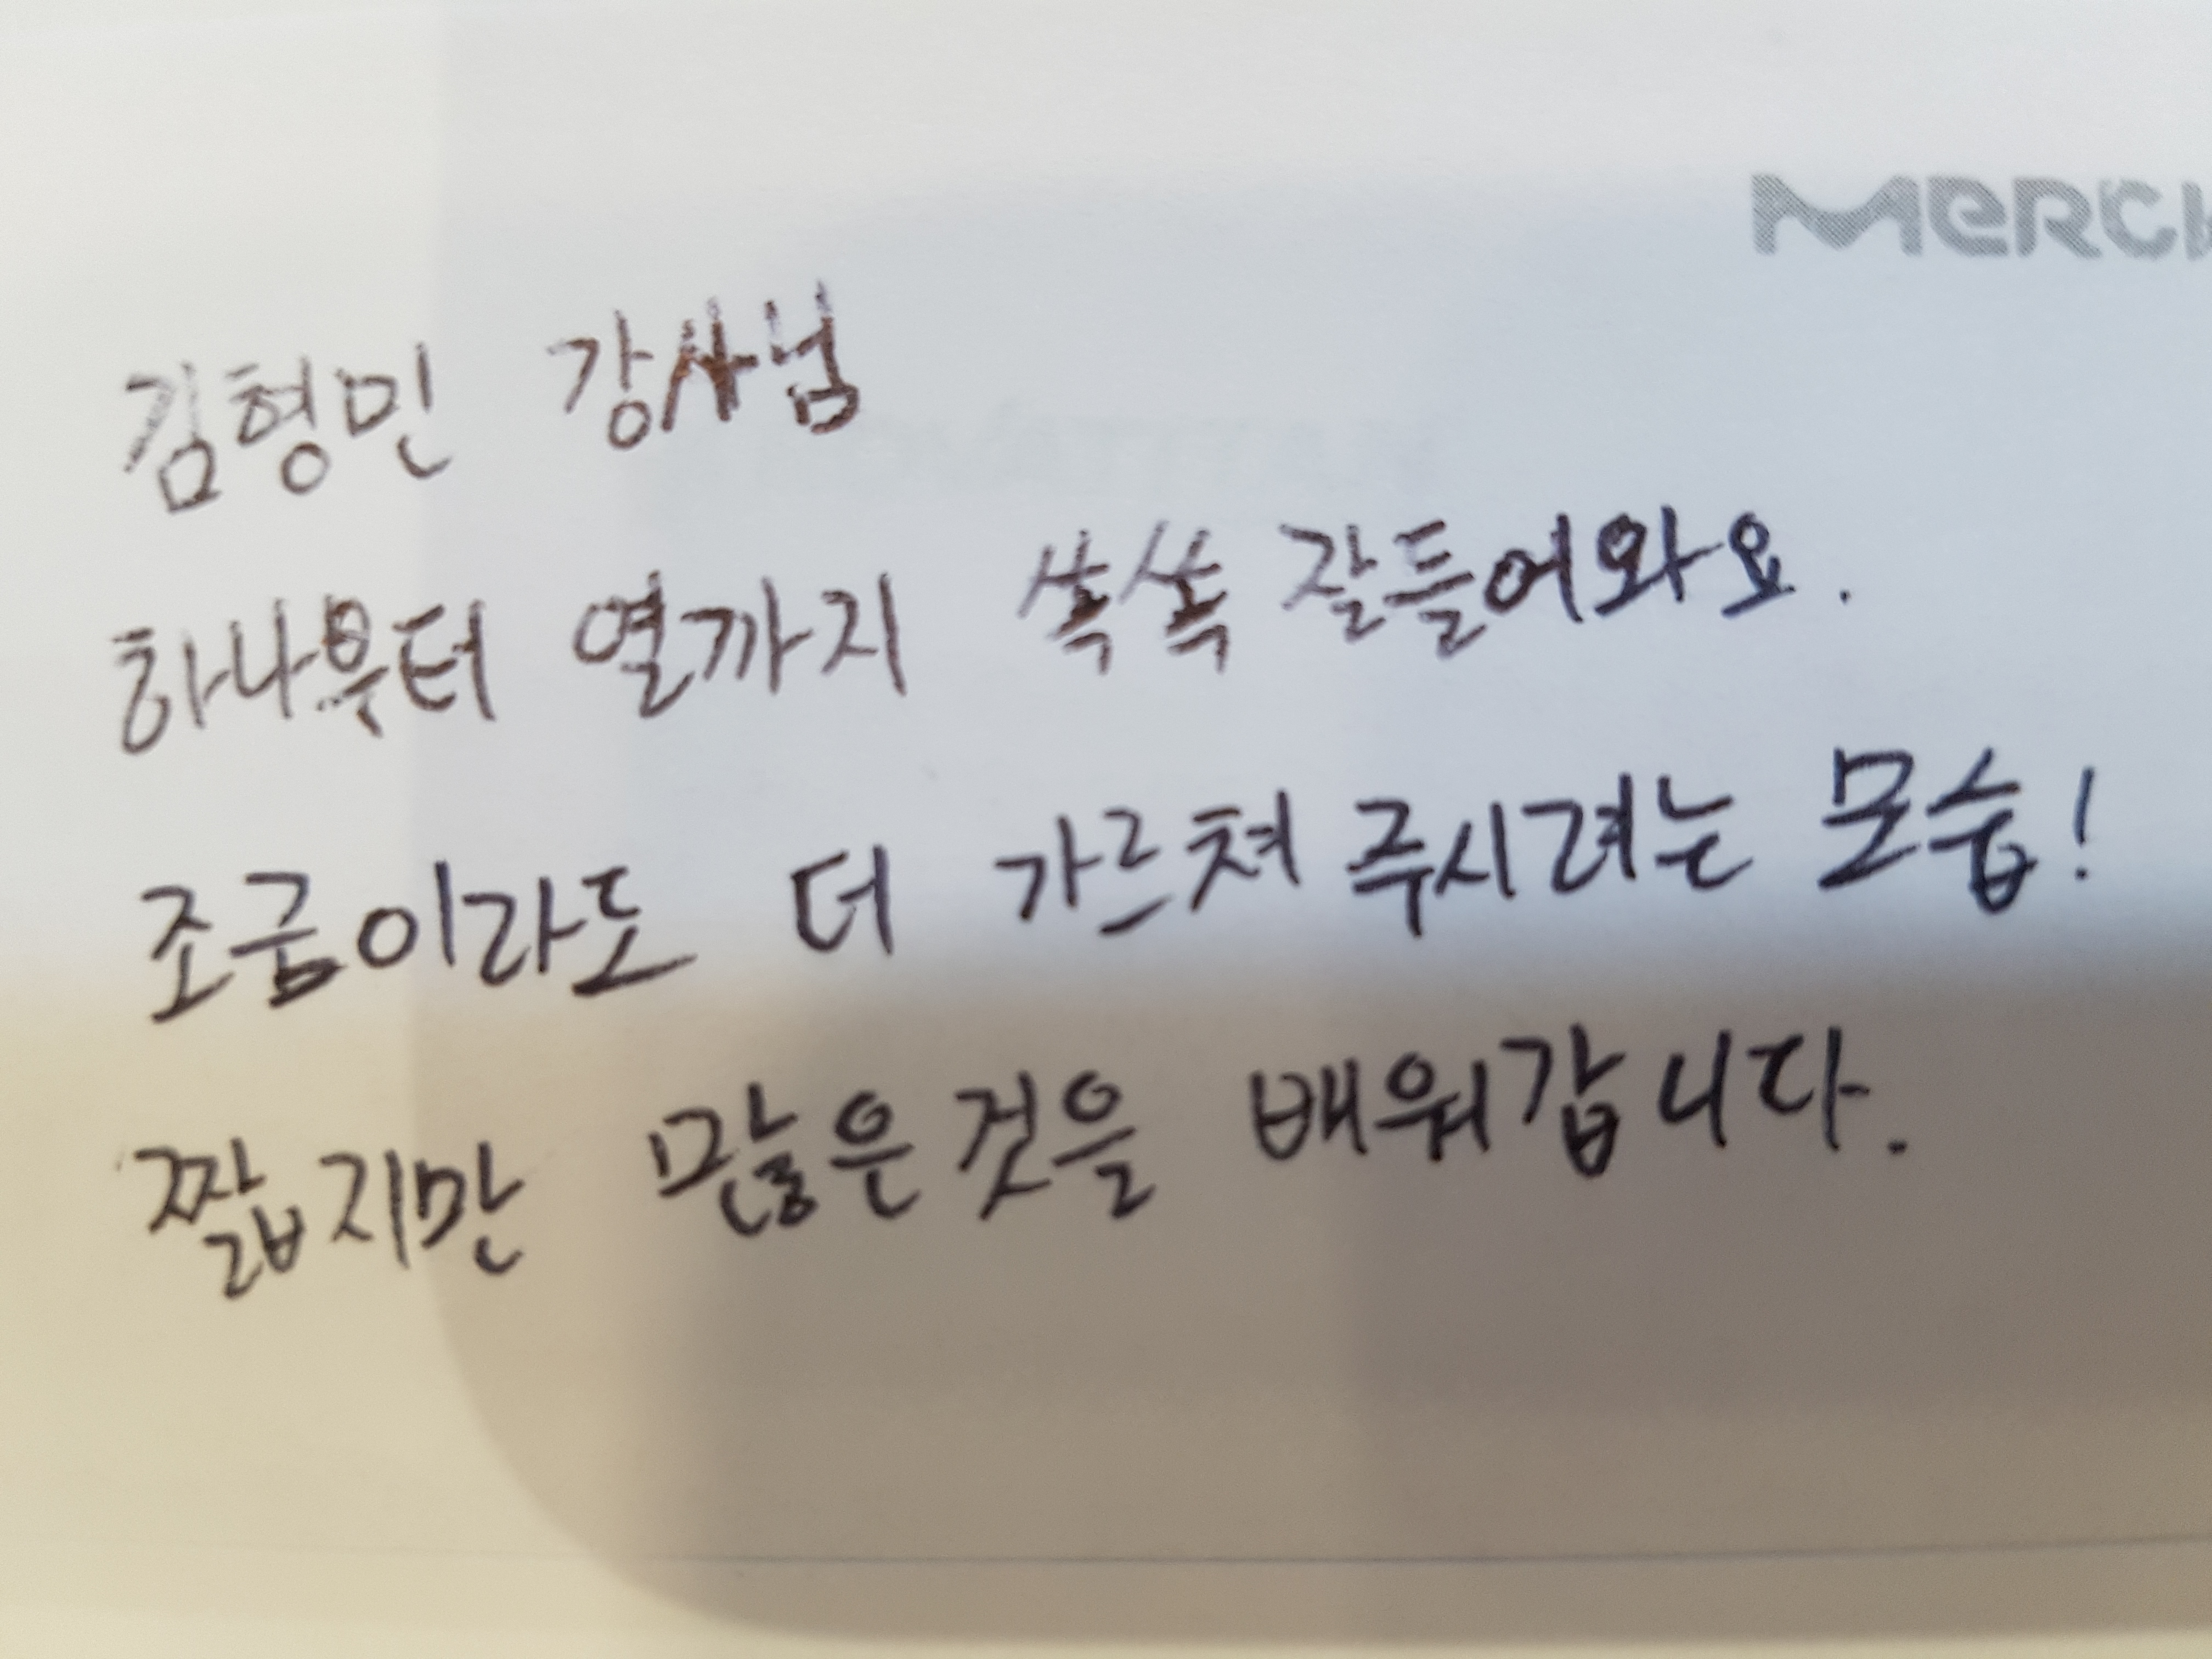 MERCK
김형민 강사님
하나부터 열까지 쏙쏙 잘들어와요.
조금이라도 더 가르쳐 주시려는 모습!
짧지만 많은것을 배워갑니다.